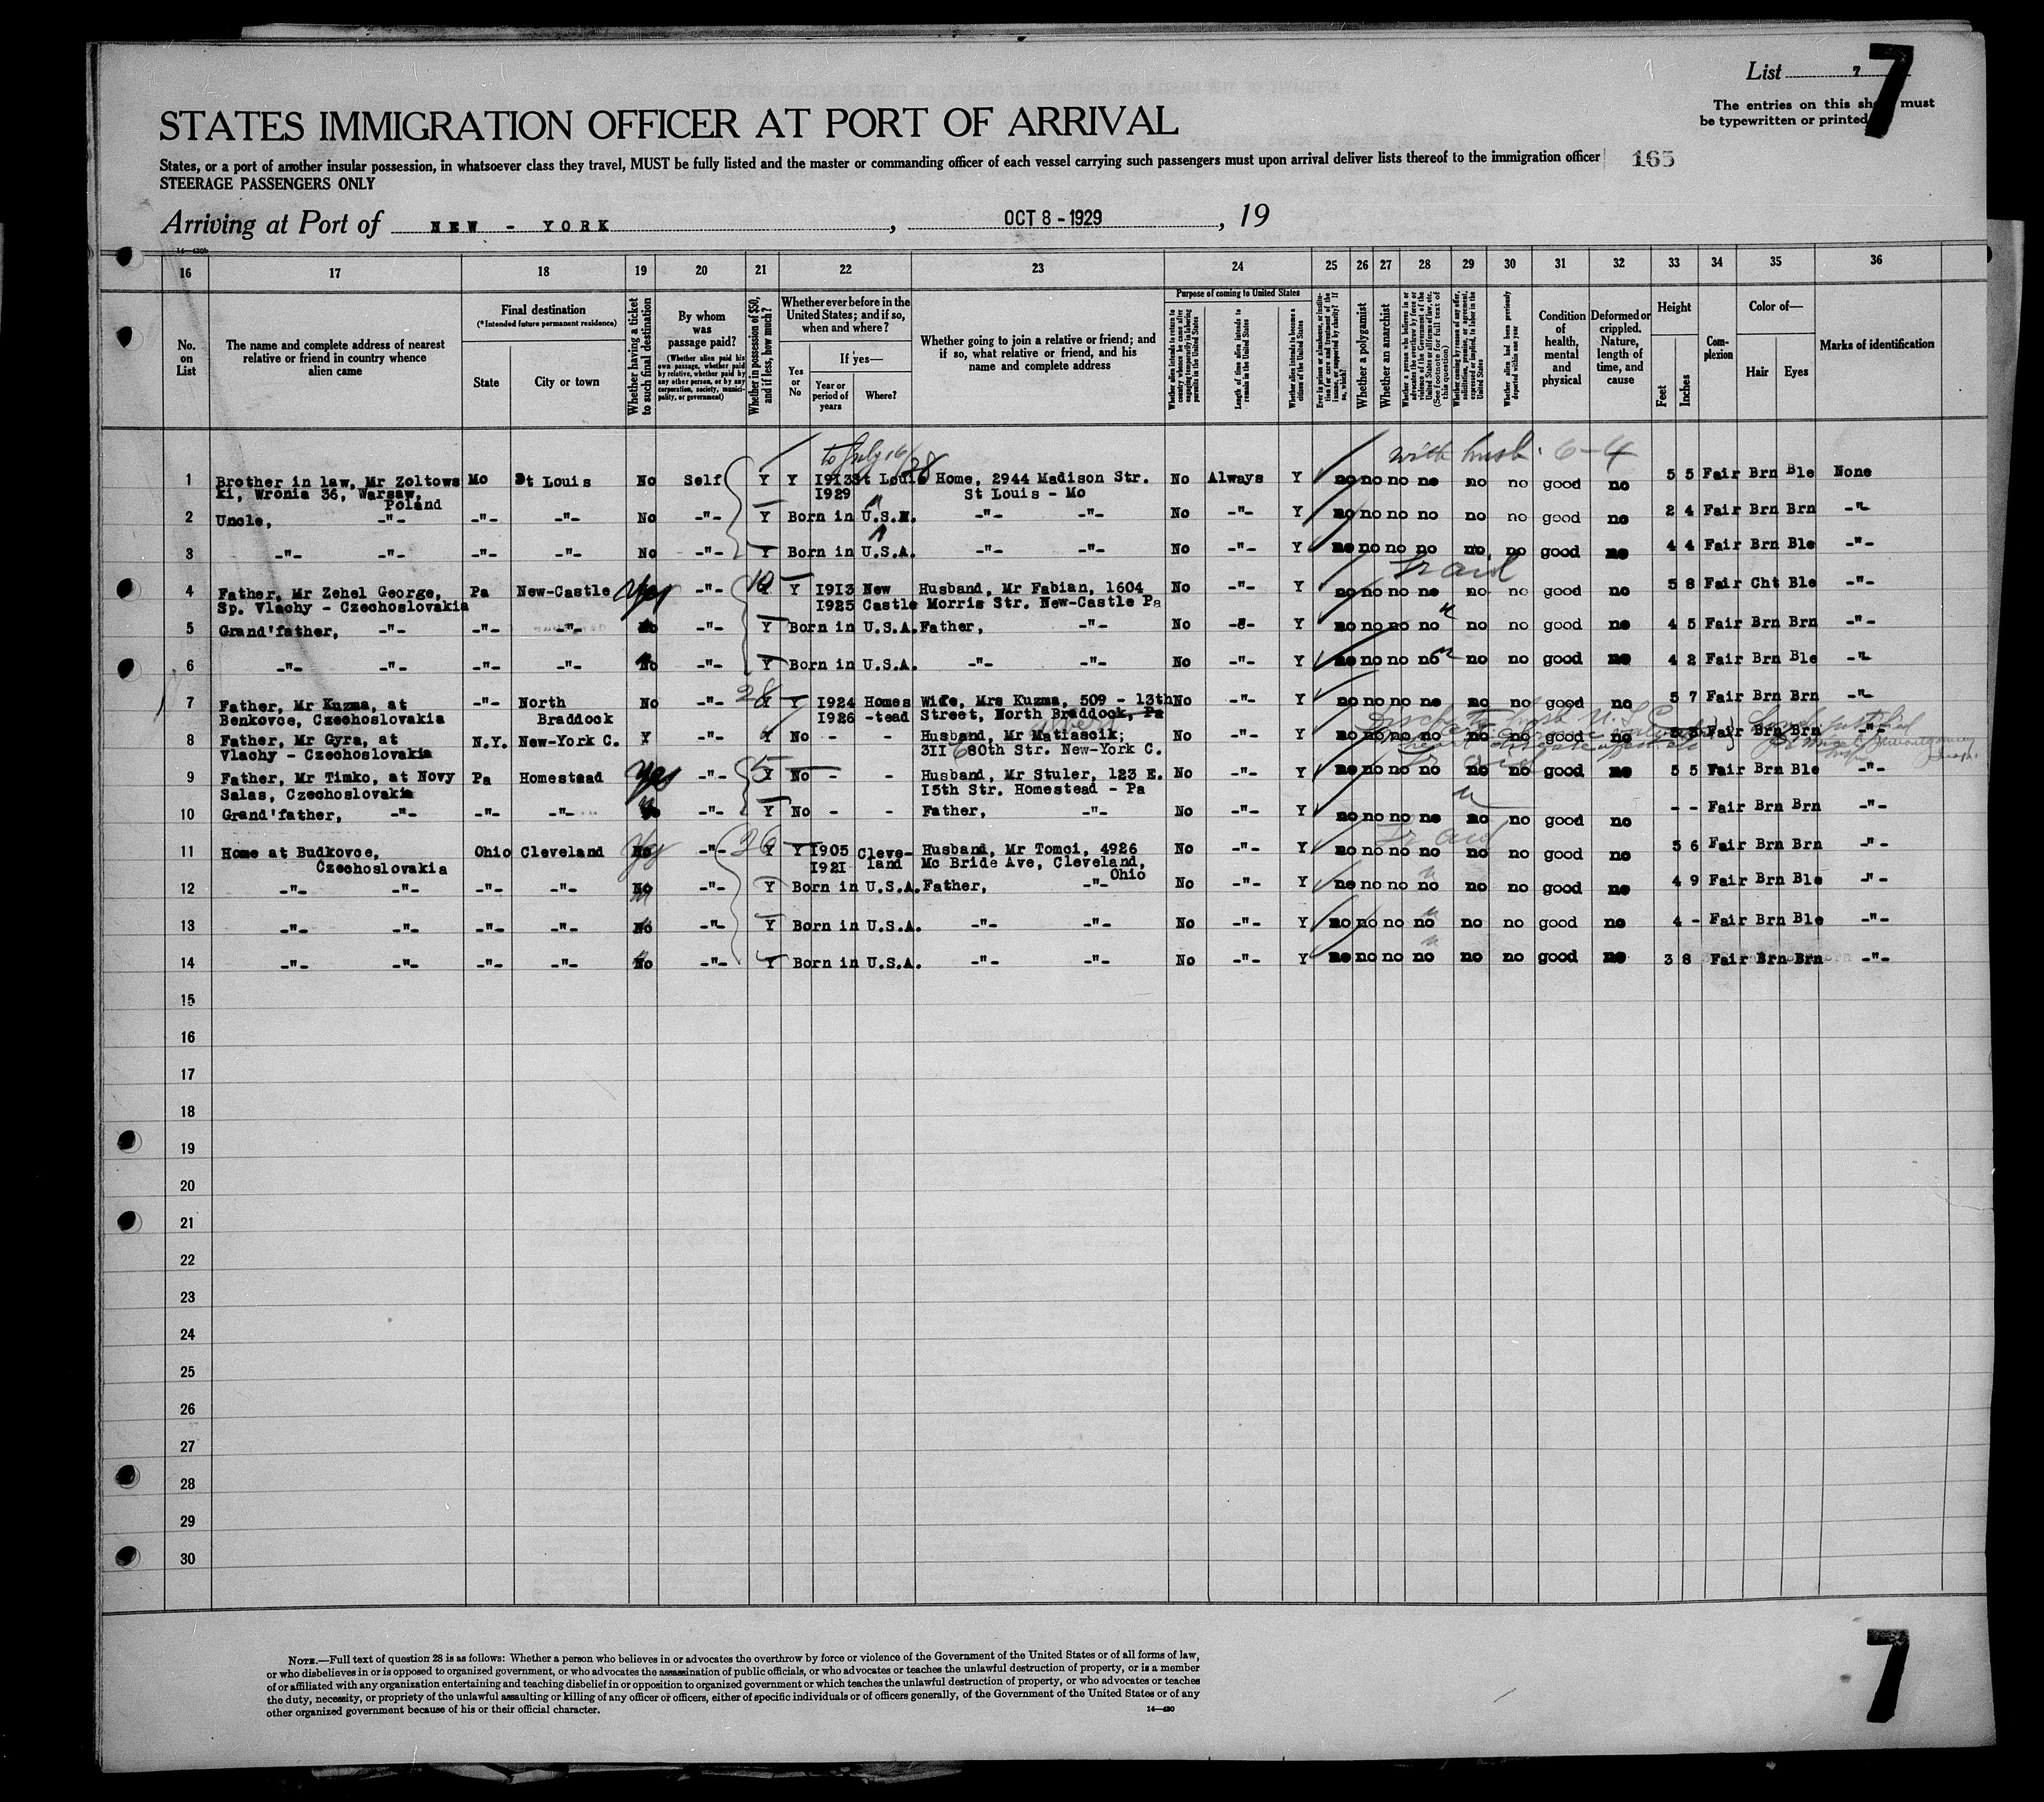 List 7
7
The entries on this sheet must
be typewritten or printed
STATES IMMIGRATION OFFICER AT PORT OF ARRIVAL
States, or a port of another insular possession, in whatsoever class they travel, MUST be fully listed and the master or commanding officer of each vessel carrying such passengers must upon arrival deliver lists thereof to the immigration officer
165
STEERAGE PASSENGERS ONLY
Arriving at Port of NEW - YORK , OCT 8 - 1929 , 19
14—430b
16 17 18 19 20 21 22 23 24 25 26 27 28 29 30 31 32 33 34 35 36
No. on List
The name and complete address of nearest relative or friend in country whence alien came
Final destination
(*Intended future permanent residence)
State
City or town
Whether having a ticket to such final destination
By whom was passage paid?
(Whether alien paid his own passage, whether paid by relative, whether paid by any other person, or by any corporation, society, municipality, or government)
Whether in possession of $50, and if less, how much?
Whether ever before in the United States; and if so, when and where?
Yes or No
If yes—
Year or period of years
Where?
Whether going to join a relative or friend; and if so, what relative or friend, and his name and complete address
Purpose of coming to United States
Whether alien intends to return to country whence he came after engaging temporarily in laboring pursuits in the United States
Length of time alien intends to remain in the United States
Whether alien intends to become a citizen of the United States
Ever in prison or almshouse, or institution for care and treatment of the insane, or supported by charity? If so, which?
Whether a polygamist
Whether an anarchist
Whether coming by reason of any offer, solicitation, promise, or agreement, expressed or implied, to labor in the United States
Whether alien had been previously deported within one year
Condition of health, mental and physical
Deformed or crippled. Nature, length of time, and cause
Height
Feet
Inches
Complexion
Color of—
Hair
Eyes
Marks of identification
to July 16/28
with husb. 6-4
1 Brother in law, Mr Zoltows Mo St Louis No Self Y Y 1913 St Louis Home, 2944 Madison Str. No Always Y no no no no no no good no 5 5 Fair Brn Ble None
ki, Wronia 36, Warsaw, 1929 St Louis - Mo
Poland
2 Uncle, -"- -"- -"- No -"- Y Born in U.S.A. -"- -"- No -"- Y no no no no no no good no 2 4 Fair Brn Brn -"-
3 -"- -"- -"- -"- No -"- Y Born in U.S.A. -"- -"- No -"- Y no no no no no no good no 4 4 Fair Brn Ble -"-
4 Father, Mr Zehel George, Pa New-Castle yes -"- 10 Y Y 1913 New Husband, Mr Fabian, 1604 No -"- Y no no no no no no good no 5 8 Fair Cht Ble -"-
Sp. Vlachy - Czechoslovakia 1925 Castle Morris Str. New-Castle Pa
5 Grand'father, -"- -"- -"- No -"- Y Born in U.S.A. Father, -"- No -"- Y no no no no no no good no 4 5 Fair Brn Brn -"-
6 -"- -"- -"- -"- No -"- Y Born in U.S.A. -"- -"- No -"- Y no no no no no no good no 4 2 Fair Brn Ble -"-
7 Father, Mr Kuzma, at -"- North No -"- 28 Y Y 1924 Homes Wife, Mrs Kuzma, 509 - 13th No -"- Y no no no no no no good no 5 7 Fair Brn Brn -"-
Benkovce, Czechoslovakia Braddock 1926 -tead Street, North Braddock, Pa
8 Father, Mr Gyra, at N.Y. New-York C. Y -"- Y No - - Husband, Mr Matiascik; No -"- Y no no no no no no good no 5 5 Fair Brn Brn -"-
Vlachy - Czechoslovakia 311 E 80th Str. New-York C.
9 Father, Mr Timko, at Novy Pa Homestead yes -"- 5 Y No - - Husband, Mr Stuler, 123 E. No -"- Y no no no no no no good no 5 5 Fair Brn Ble -"-
Salas, Czechoslovakia 15th Str. Homestead - Pa
10 Grand'father, -"- -"- -"- No -"- Y No - - Father, -"- No -"- Y no no no no no no good no - - Fair Brn Brn -"-
11 Home at Budkovce, Ohio Cleveland No -"- 26 Y Y 1905 Cleve- Husband, Mr Tomci, 4926 No -"- Y no no no no no no good no 5 6 Fair Brn Brn -"-
Czechoslovakia 1921 land Mc Bride Ave, Cleveland,
Ohio
12 -"- -"- -"- -"- No -"- Y Born in U.S.A. Father, -"- No -"- Y no no no no no no good no 4 9 Fair Brn Ble -"-
13 -"- -"- -"- -"- No -"- Y Born in U.S.A. -"- -"- No -"- Y no no no no no no good no 4 - Fair Brn Ble -"-
14 -"- -"- -"- -"- No -"- Y Born in U.S.A. -"- -"- No -"- Y no no no no no no good no 3 8 Fair Brn Brn -"-
15
16
17
18
19
20
21
22
23
24
25
26
27
28
29
30
NOTE.—Full text of question 28 is as follows: Whether a person who believes in or advocates the overthrow by force or violence of the Government of the United States or of all forms of law,
or who disbelieves in or is opposed to organized government, or who advocates the assassination of public officials, or who advocates or teaches the unlawful destruction of property, or is a member
of or affiliated with any organization entertaining and teaching disbelief in or opposition to organized government or which teaches the unlawful destruction of property, or who advocates or teaches
the duty, necessity, or propriety of the unlawful assaulting or killing of any officer or officers, either of specific individuals or of officers generally, of the Government of the United States or of any
other organized government because of his or their official character.
14—430
7